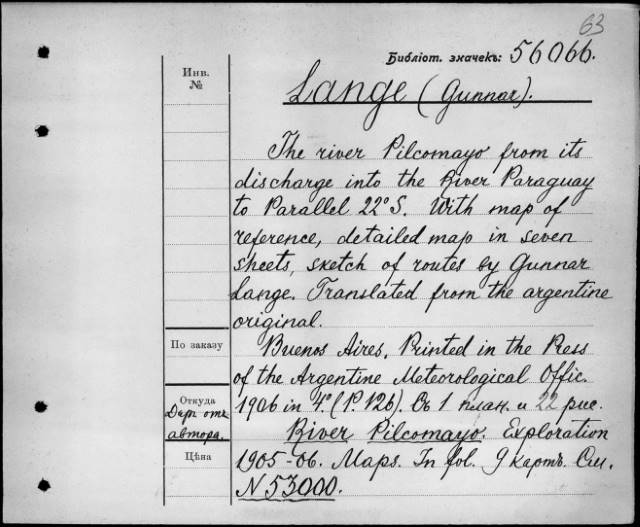 63
Библіот. значекъ: 56066.
Инв.
№
Lange (Gunnar).
The river Pilcomayo from its
discharge into the River Paraguay
to Parallel 22° S. With map of
reference, detailed map in seven
sheets, sketch of routes by Gunnar
Lange. Translated from the argentine
original.
По заказу
Buenos Aires. Printed in the Press
of the Argentine Meteorological Offic.
Откуда
Даръ отъ
автора.
1906 in 4° (P. 126). Съ 1 план. и 22 рис.
River Pilcomayo. Exploration
Цѣна
1905-06. Maps. In fol. 9 картъ. См.
N 53000.